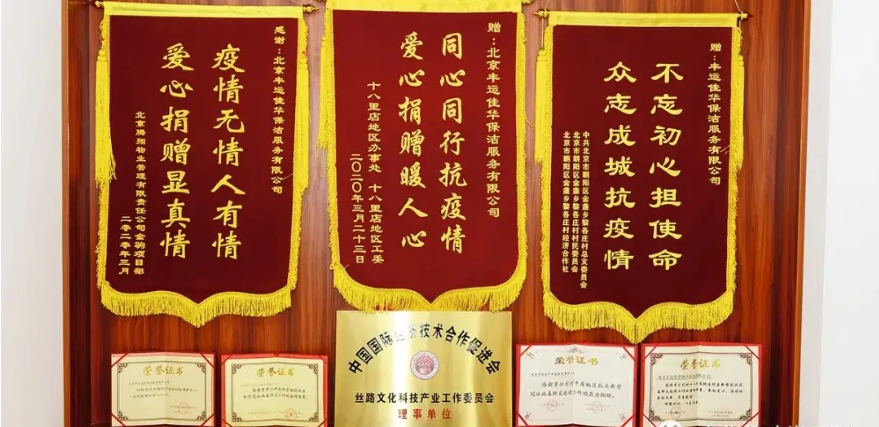 感谢：北京丰运佳华保洁服务有限公司
疫情无情人有情
爱心捐赠显真情
北京腾翔物业管理有限责任公司金驹项目部
二零二零年三月
赠：北京丰运佳华保洁服务有限公司
同心同行抗疫情
爱心捐赠暖人心
十八里店地区办事处 十八里店地区工委
二〇二〇年三月二十三日
赠：丰运佳华保洁服务有限公司
不忘初心担使命
众志成城抗疫情
中共北京市朝阳区金盏乡黎各庄村总支委员会
北京市朝阳区金盏乡黎各庄村村民委员会
北京市朝阳区金盏乡黎各庄村经济合作社
中国国际经济技术合作促进会
丝路文化科技产业工作委员会
理事单位
荣誉证书
荣誉证书
荣誉证书
荣誉证书